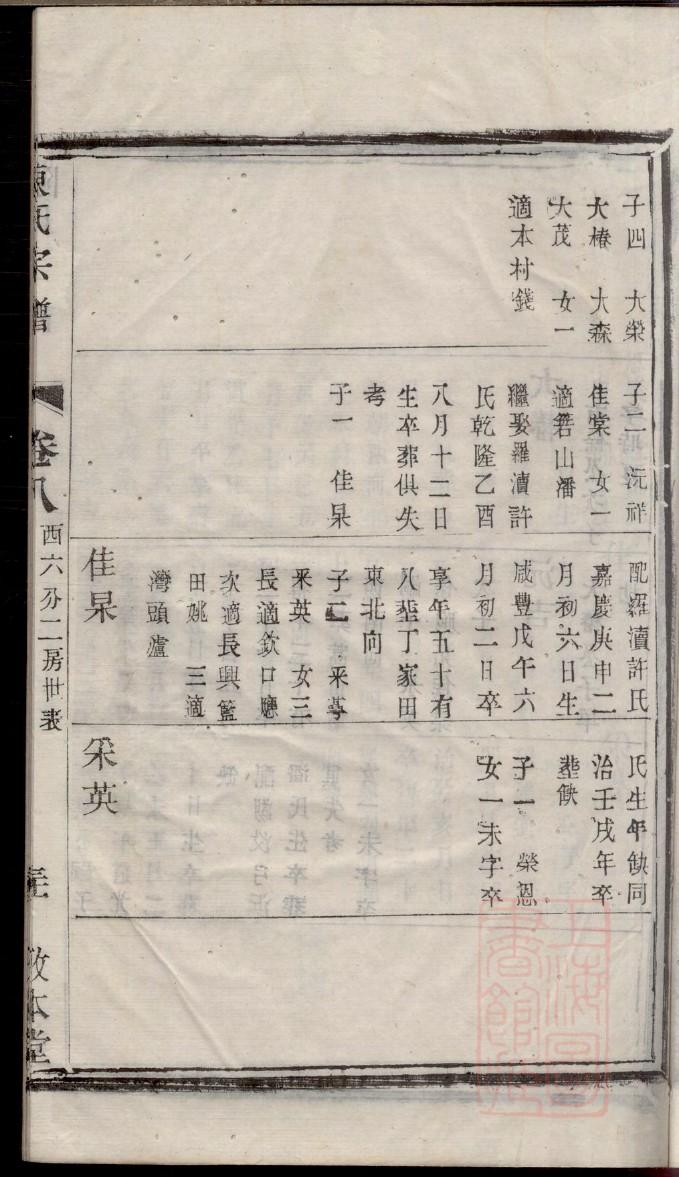 子四 大榮
大椿 大森
大茂 女一
適本村錢
子二 沅祥
佳棠 女一
適箬山潘
繼娶羅瀆許
氏乾隆乙酉
八月十二日
生卒葬俱失
考
子一 佳杲
配羅瀆許氏
嘉慶庚申二
月初六日生
咸豐戊午六
月初二日卒
享年五十有
八塟丁家田
東北向
子二 采葶
采英 女三
長適欽口廳
次適長興籃
田姚 三適
灣頭盧
佳杲
氏生年缺同
治壬戌年卒
塟缺
子一 榮恩
女一未字卒
采英
陳氏宗譜
卷八
西六分二房世表
敬本堂
上海圖書館藏